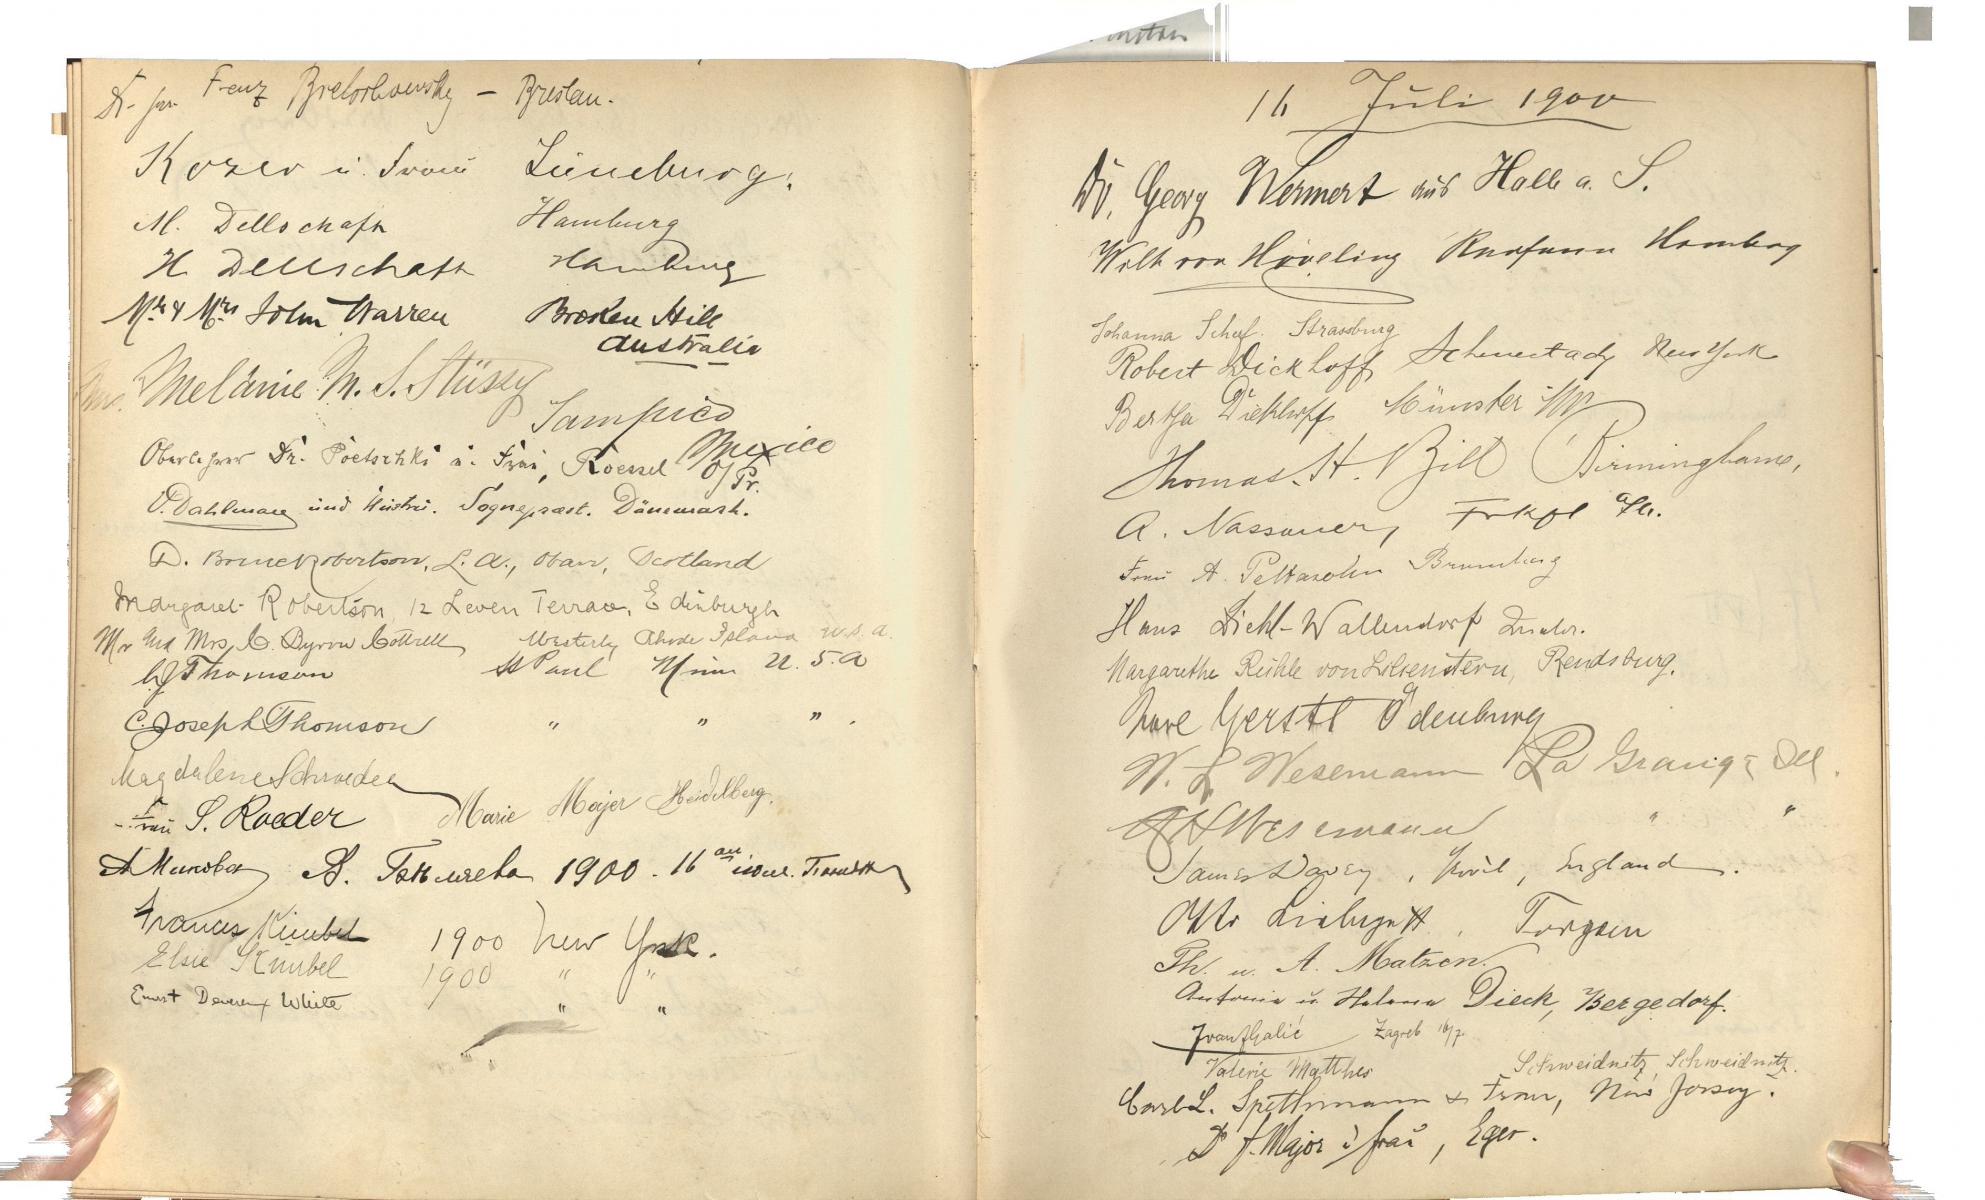 Dr. jur. Franz Bretschowsky – Breslau.
u. Frau Lüneburg.
M. Dellschaft Hamburg
H. Dellschaft Hamburg
Mr & Mrs John Warren Broken Hill
Australia
Mme. Melanie M. S. Stüssy
Tampico
Mexico
Oberlehrer Dr. Poetschki u. Frau, Roessel O/Pr.
V. Dahlman und Hustru. Sognepræst. Dänemark.
D. Bruce Robertson, L.A., Oban, Scotland
Margaret Robertson, 12 Leven Terrace, Edinburgh
Mr and Mrs C. Byron Cottrell Westerly Rhode Island U.S.A.
Thomson St Paul Minn U.S.A
C. Joseph Thomson " " " .
Magdalene Schroeder
Marie Majer Heidelberg.
Frau S. Roeder
1900 . 16
Frances Kimbel 1900 New York.
Elsie Kimbel 1900 " "
Ernst Devereux White " "
16 Juli 1900
Dr. Georg Wermert aus Halle a. S.
Wilh von Höveling Kaufmann Hamburg
Johanna Scharf. Strassburg
Robert Dickhoff Schenectady New York
Bertha Dickhoff Münster i/W
Thomas. H. Bill Birmingham,
A. Nassauer, Frkft a/M.
Frau A. Peltasohn Bromberg
Hans Diehl-Wallendorf
Margarethe Rühle von Lilienstern, Rendsburg.
Gerstl Ödenburg
W. L Wesemann La Grange Ill.
Wesemann " "
James Davey, England.
Otto
Th. u. A. Matzen.
Antonie u. Helene Dieck, Bergedorf.
Zagreb 16/7.
Valerie Matthes Schweidnitz, Schweidnitz.
Carl L. Spethmann & Frau, New Jersey.
Dr J. Major u frau, Eger.